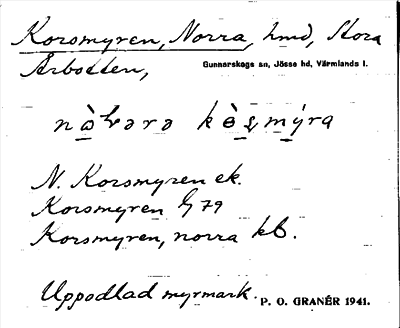 Korsmyren, Norra, hmd, Stora
Årbotten,
Gunnarskogs sn, Jösse hd, Värmlands l.
N. Korsmyren ek.
Korsmyren 79
Korsmyren, norra kb.
Uppodlad myrmark.
P. O. GRANÉR 1941.